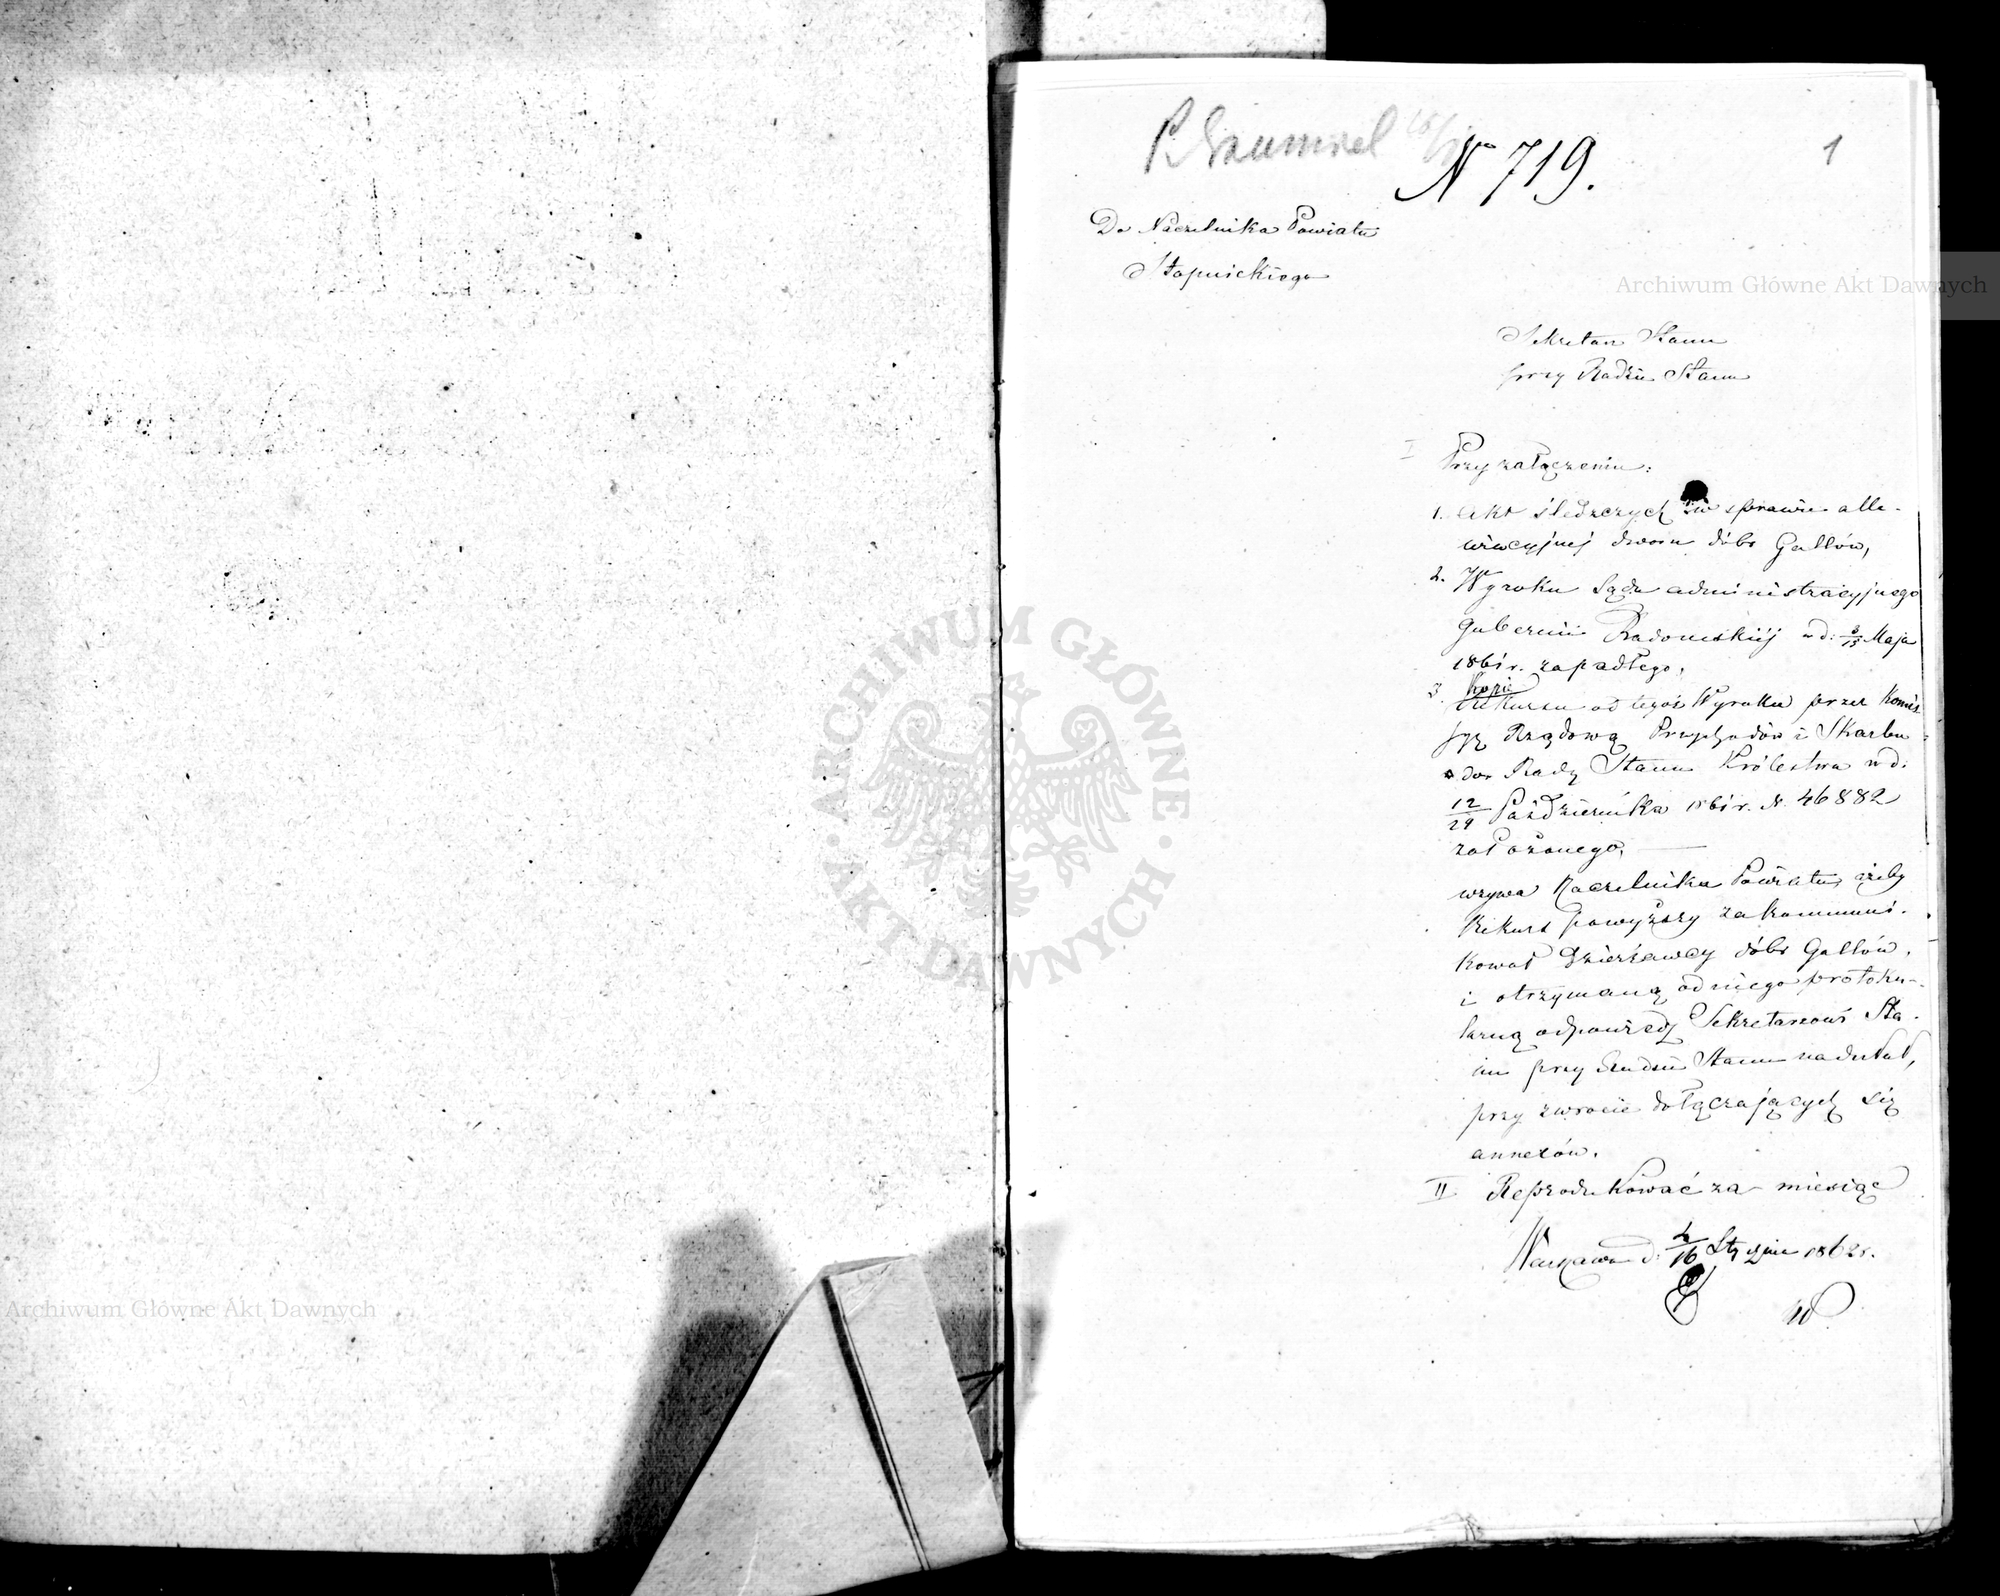 P.
N 719.
1
Do Naczelnika Powiatu
Stopnickiego
Sekretarz Stanu
przy Radzie Stanu
I Przy załączeniu:
1. Akt śledczych w sprawie alle-
wiacyjnej dworu dóbr Gallów,
2. Wyroku Sądu administracyjnego
Gubernii Radomskiéj w d: 3/15 Maja
1861 r. zapadłego,
3. Kopii
Rekursu od tegoż Wyroku przez Komis
syę Rządową Przychodów i Skarbu
do Rady Stanu Królestwa w d.
12/24 Października 1861 r. N. 46882
założonego,
wzywa Naczelnika Powiatu, ażeby
Rekurs powyższy zakommuni-
kował Dzierżawcy dóbr Gallów,
i otrzymaną od niego protoku-
larną odpowiedź Sekretarzowi Sta-
nu przy Radzie Stanu nadesłał,
przy zwrocie dołączających się
annexów.
II Reprodukować za miesiąc
Warszawa d. 4/16 Stycznia 1862 r.
Archiwum Główne Akt Dawnych
Archiwum Główne Akt Dawnych
ARCHIWUM GŁÓWNE
AKT DAWNYCH